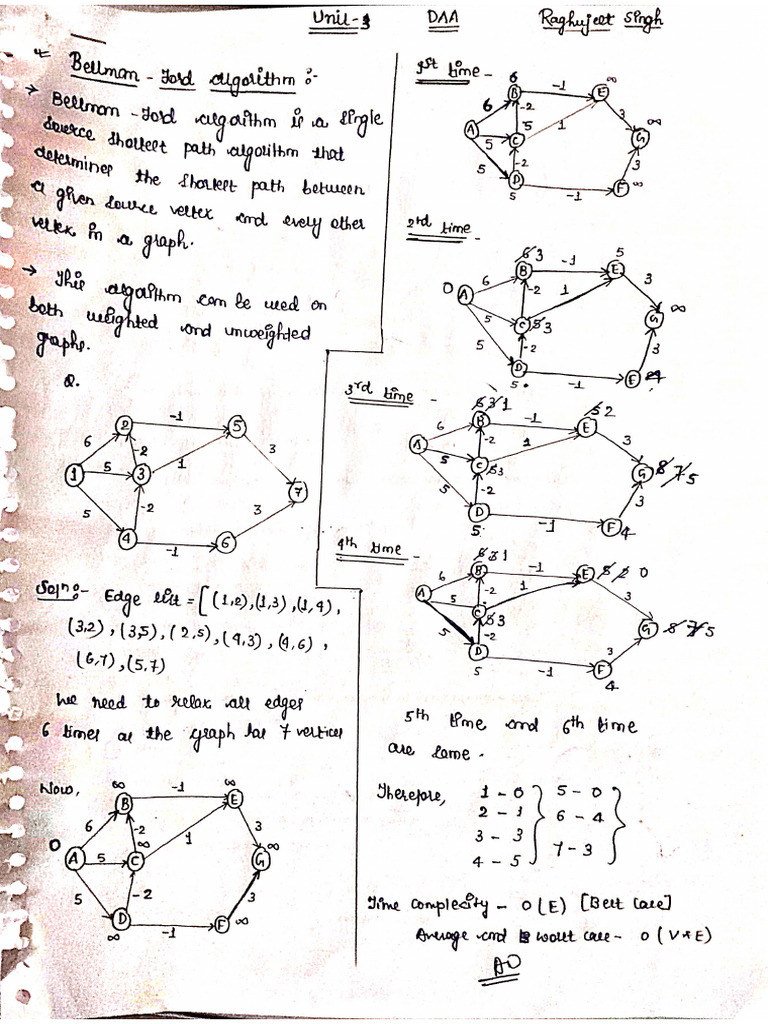 Unit-3 DAA Raghujeet Singh
* Bellman-Ford algorithm:-
→ Bellman-Ford algorithm is a single
source shortest path algorithm that
determines the shortest path between
a given source vertex and every other
vertex in a graph.
→ This algorithm can be used on
both weighted and unweighted
graphs.
Q.
2 -1 5
6 -2 3
1 5 3 1 7
5 -2 3
4 -1 6
Soln:- Edge list = [(1,2),(1,3),(1,4),
(3,2),(3,5),(2,5),(4,3),(4,6),
(6,7),(5,7)
We need to relax all edges
6 times as the graph has 7 vertices
Now,
∞ -1 ∞
B E
6 -2 3
0 ∞ 1 ∞
A 5 C G
5 -2 3
D -1 F ∞
∞
1st time-
6 -1 ∞
B E
6 -2 3 ∞
A 5 5 C 1 G
5 -2 3
D -1 F ∞
5
2nd time-
6 3 -1 5
B E
0 A 6 -2 1 3 ∞
5 C 5 3 G
5 -2 3
D -1 F 4
5
3rd time-
6 3 1 -1 5 2
B E
A 6 -2 1 3
5 C 5 3 G 8 7 5
5 -2 3
D -1 F
5 4
4th time-
6 3 1 -1 5 2 0
B E
A 6 -2 1 3
5 C 5 3 G 8 7 5
5 -2 3
D -1 F
5 4
5th time and 6th time
are same.
Therefore, 1-0 5-0
2-1 6-4
3-3 7-3
4-5
Time complexity - O(E) [Best case]
Average and worst case - O(V*E)